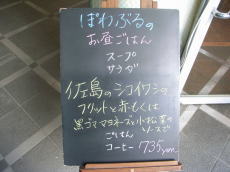 ぽわぶるの
お昼ごはん
スープ
サラダ
佐島のシコイワシの
フリットと赤もくは
黒ゴママヨネーズと小松菜の
ソースで
ごはん
コーヒー 735yen